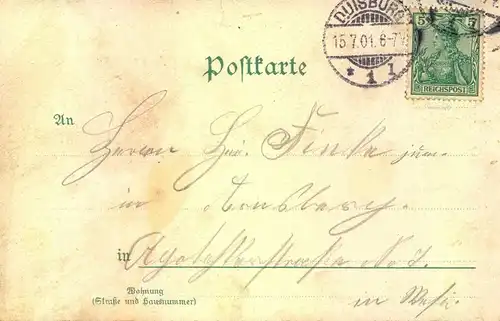 DUISBURG
15.7.01. 6-7V.
* 1 l
5 5
REICHSPOST
Postkarte
An
Herrn Hei. Finke jun.
in Arnsberg
in No 7.
Wohnung
(Straße und Hausnummer)
in Westf.